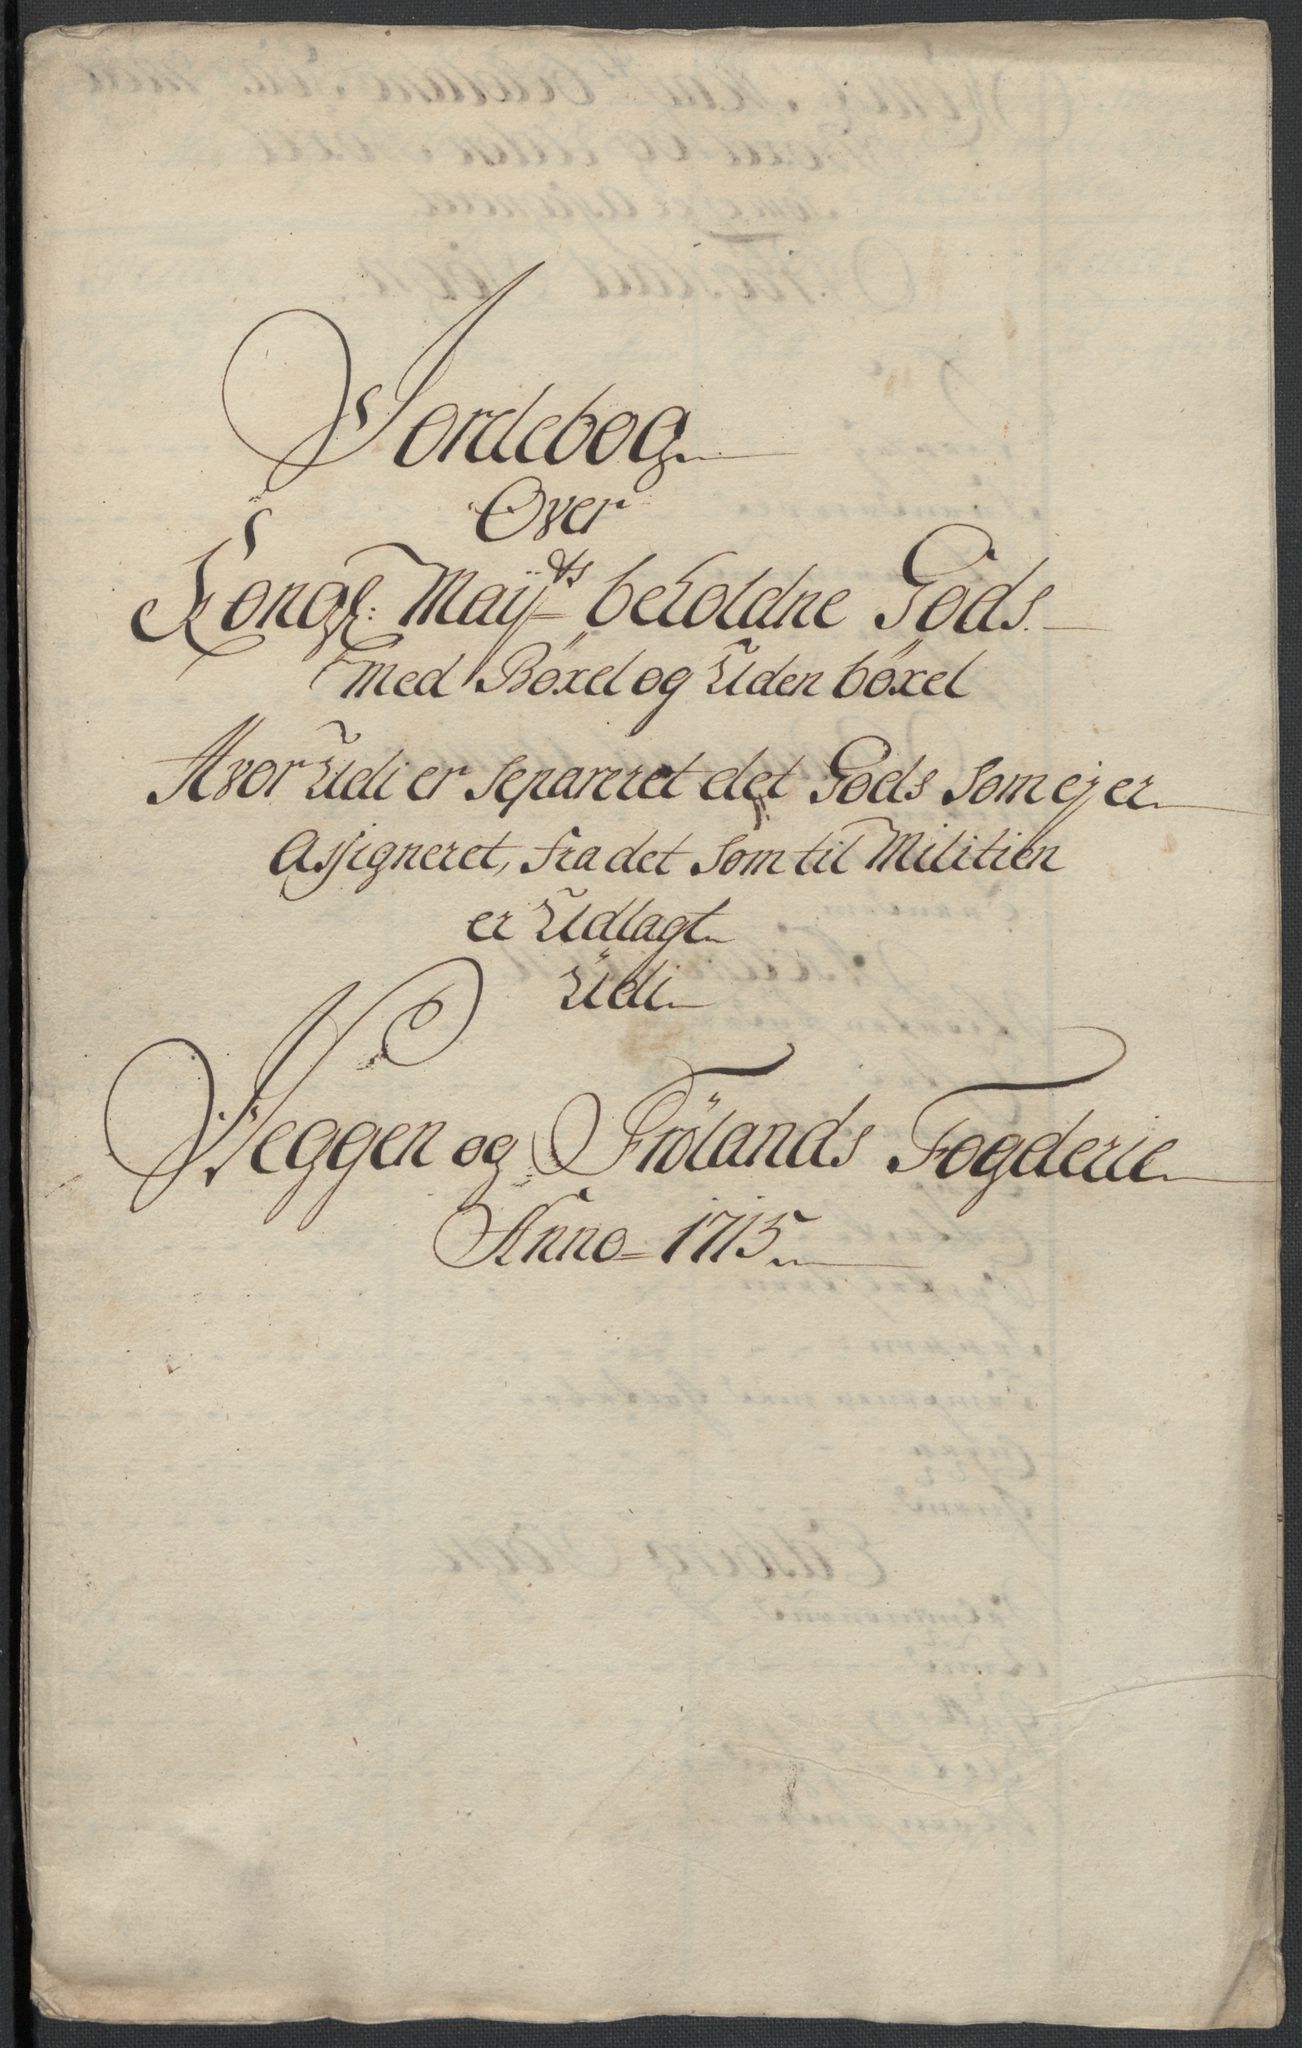 Jordebog
Over
Kongl: Mayts beholdne Gods
med Böxel og Uden böxel
Hvor Udi er separeret det Gods som ej er
Assigneret, fra det som til Militien
er Udlagt
Udi
Heggen og Frölands Fogderie
Anno 1715